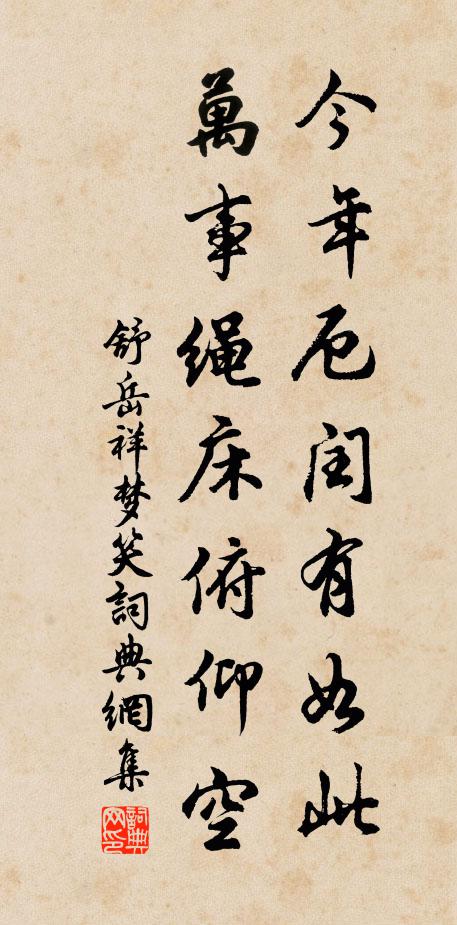 今年厄闰有如此
萬事绳床俯仰空
舒岳祥梦笑詞典網集
詞典网印